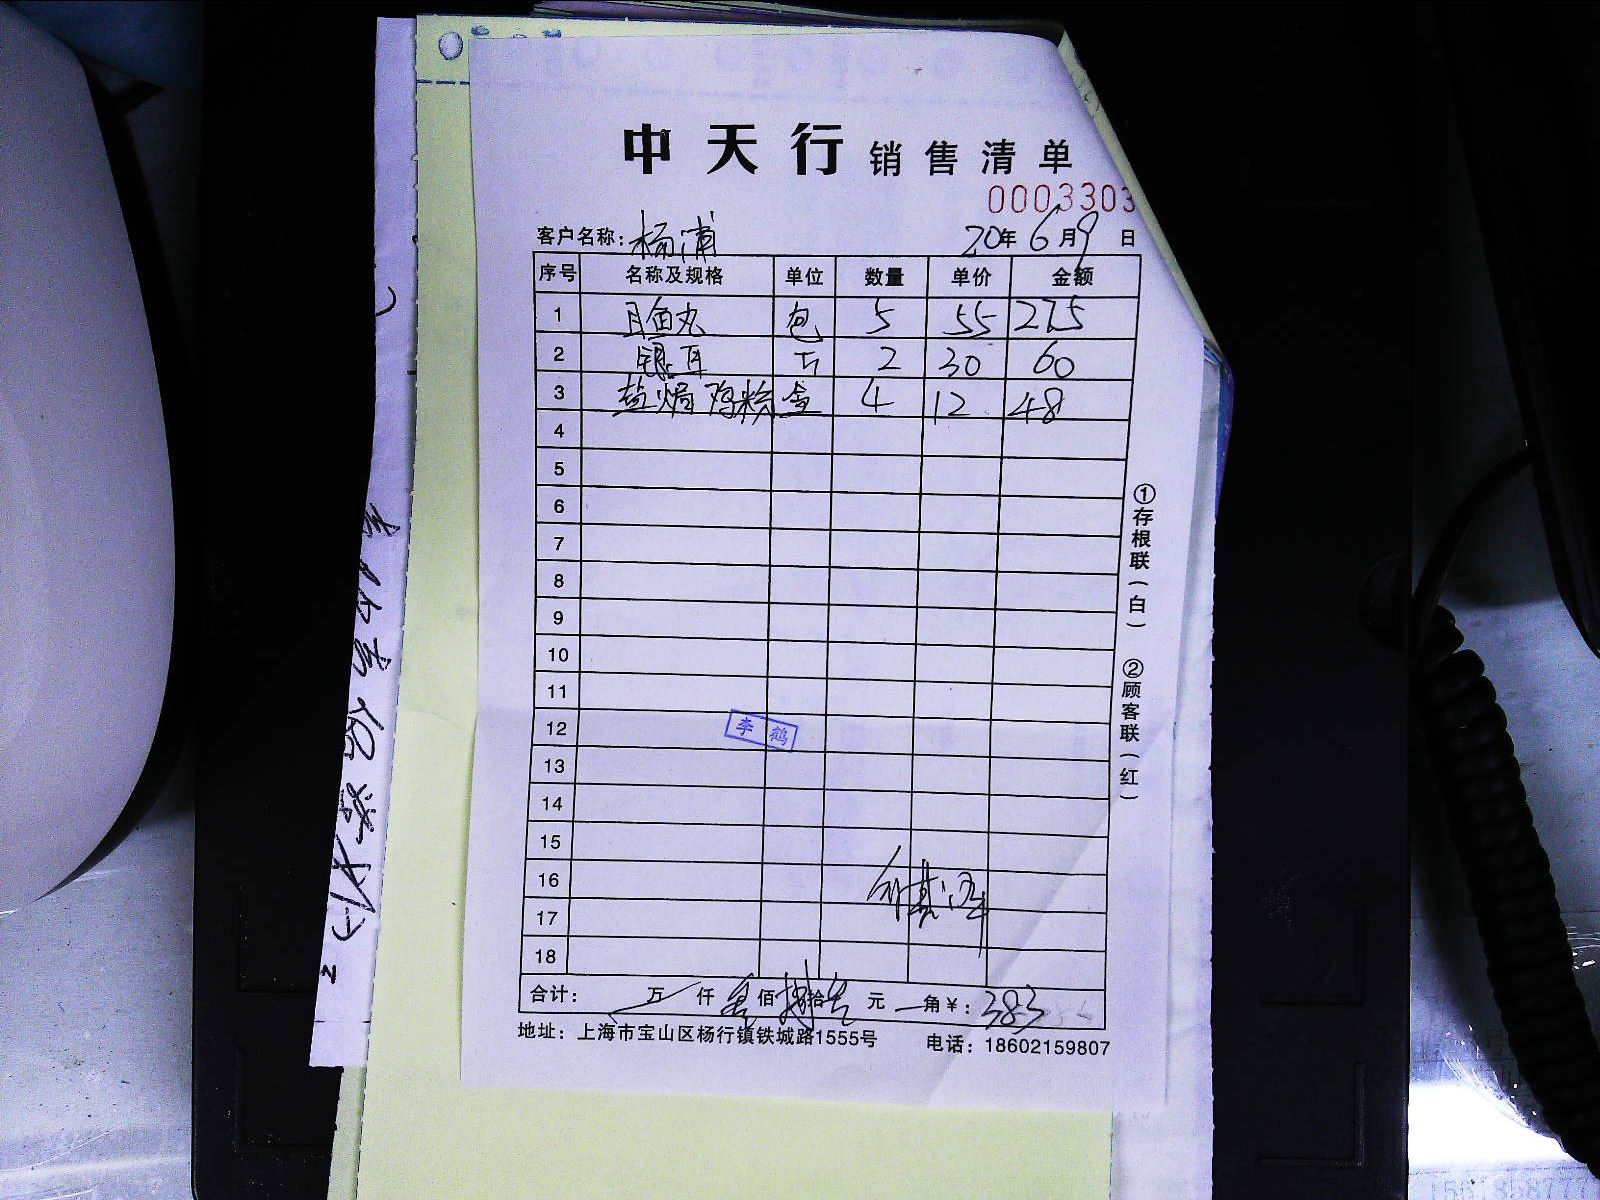 中天行 销售清单
0003303
客户名称：杨浦 20年6月9日
序号 名称及规格 单位 数量 单价 金额
1 目鱼丸 包 5 55 275
2 银耳 斤 2 30 60
3 盐焗鸡粉 盒 4 12 48
4
5
6
7
8
9
10
11
12 李鹤
13
14
15
16
17
18
合计： 万 仟 叁佰捌拾叁元 角￥：383
地址：上海市宝山区杨行镇铁城路1555号 电话：18602159807
①存根联（白） ②顾客联（红）